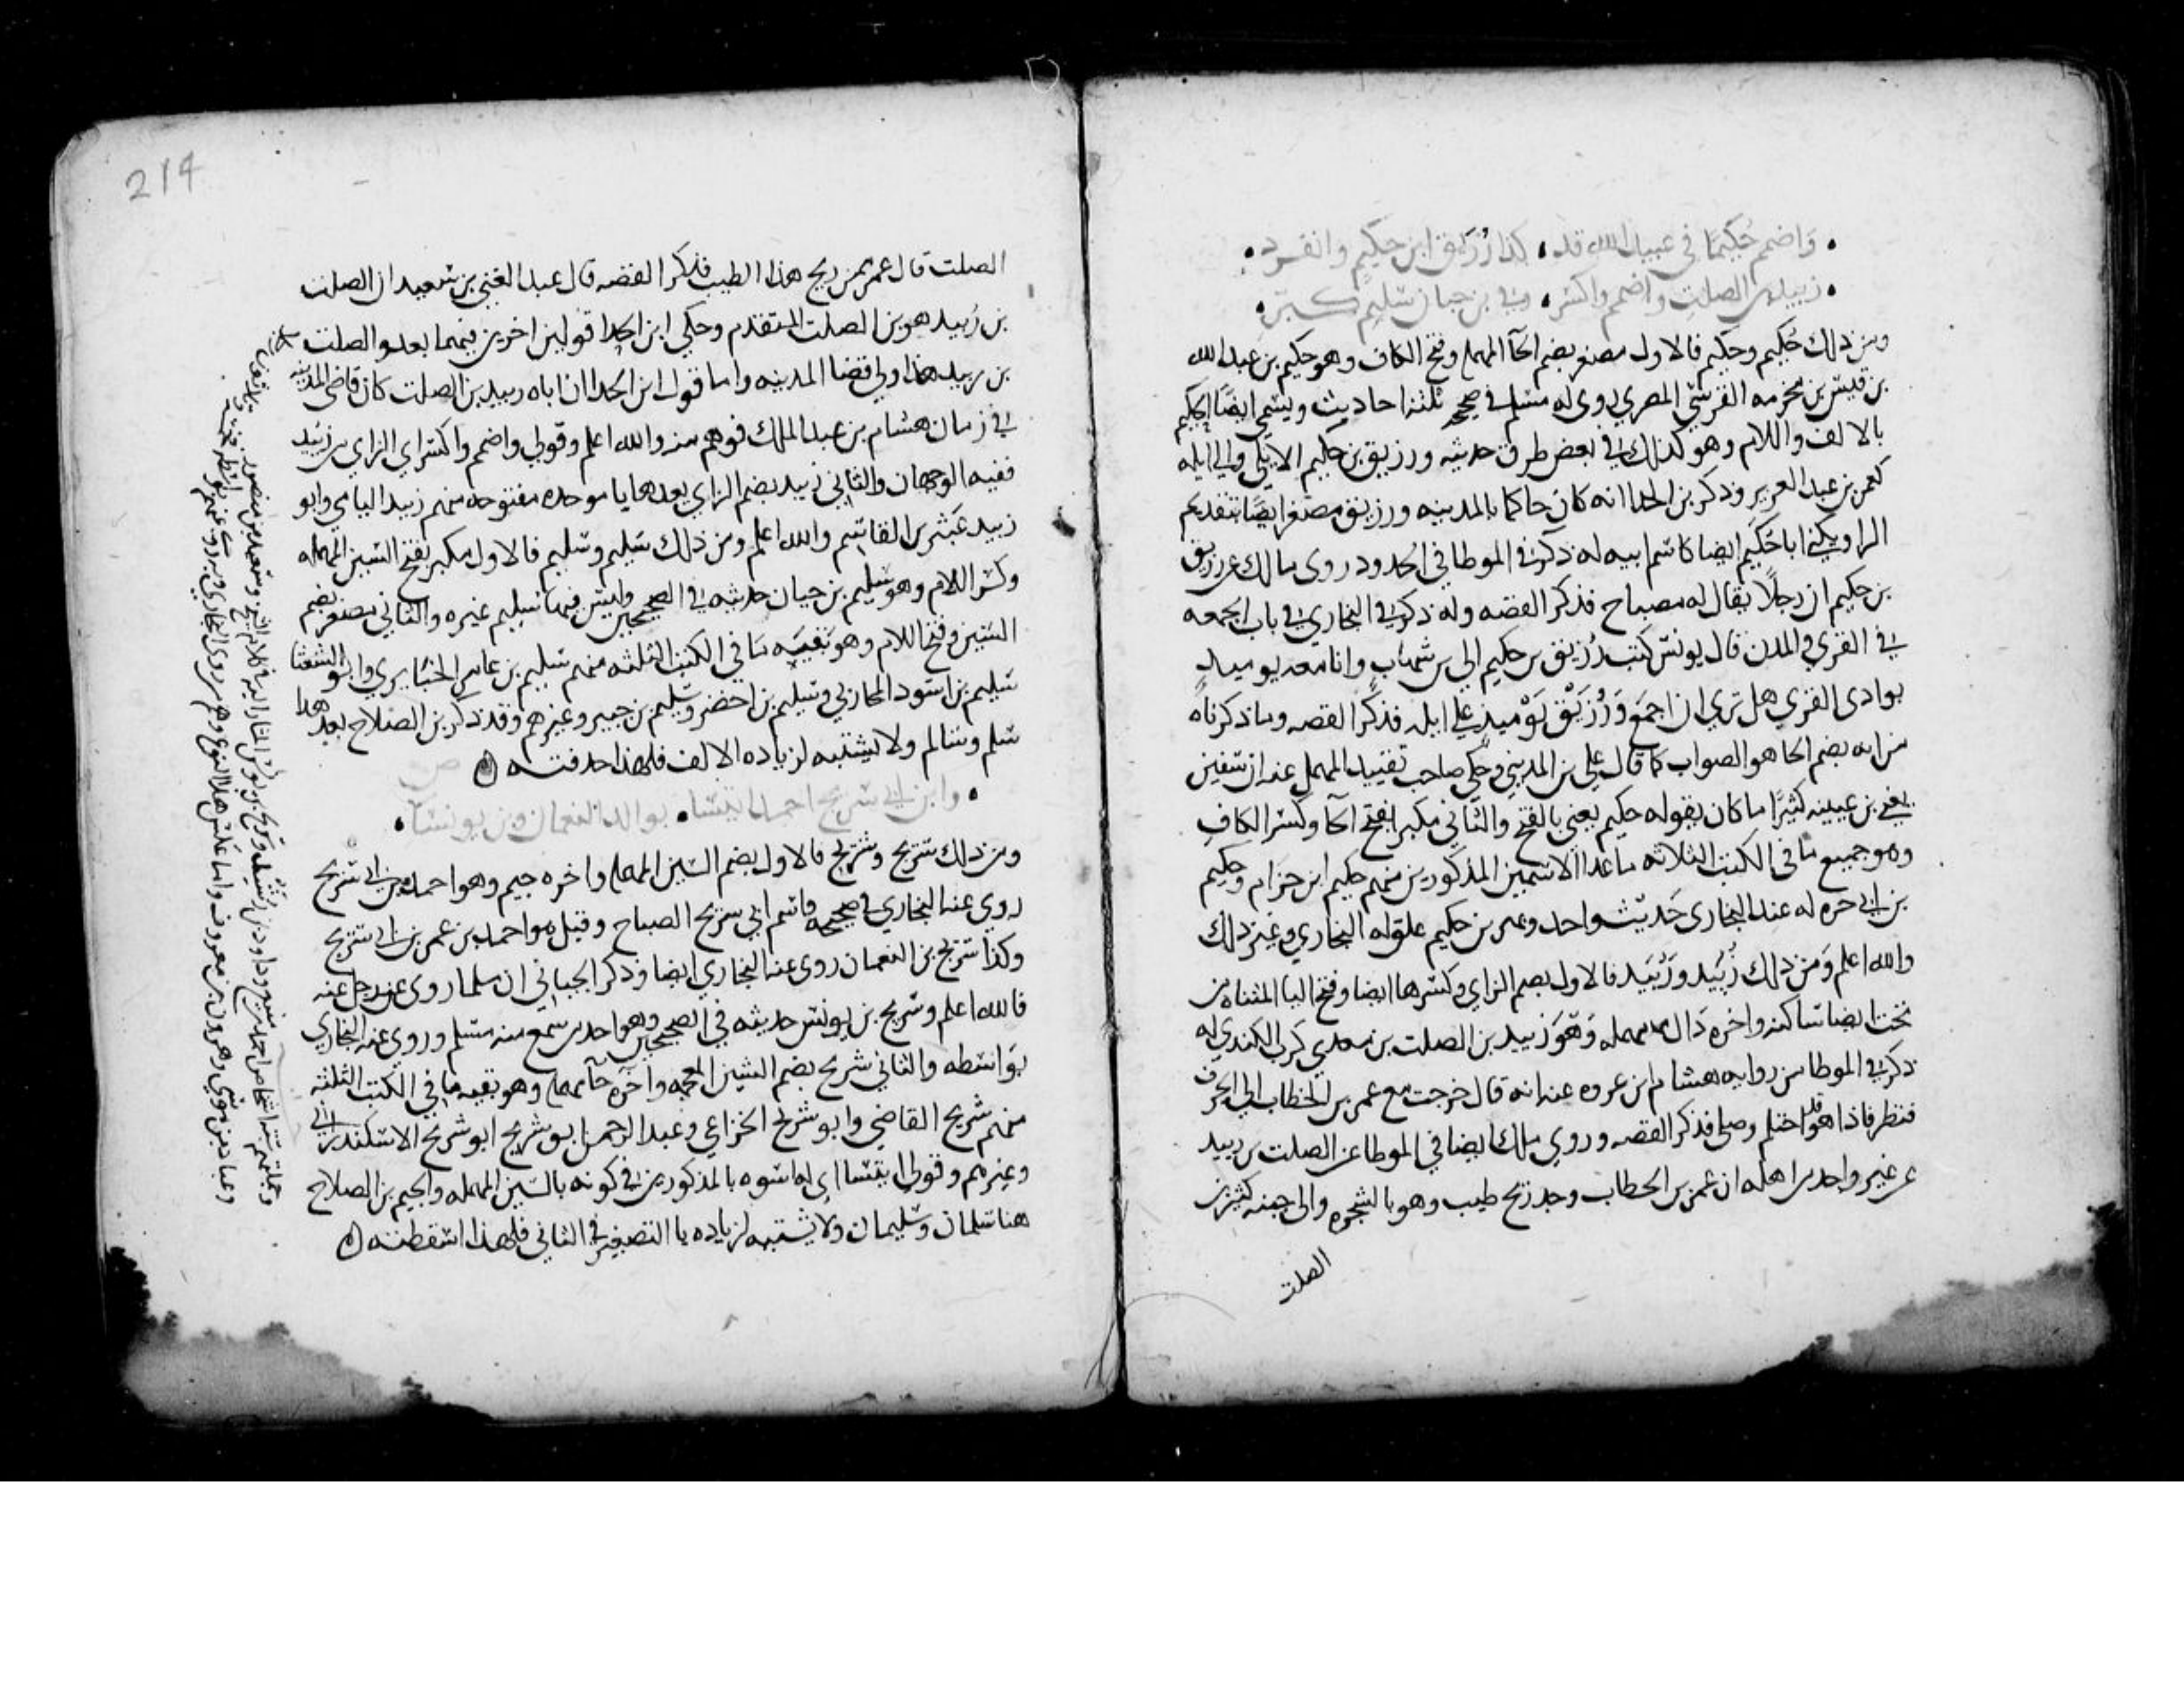 واضمم حكيما في عبيد الله قد كذا رزيق ابن حكيم وانفرد
زبيد بن الصلت واضمم واكسر وفي بن حيان سليم كبر
ومن ذلك حكيم وحكيم فالاول مصغر بضم الحآ المهمله وفتح الكاف وهو حكيم بن عبد الله
بن قيس بن مخرمه القرشي المصري روى له مسلم في صحيحه ثلثة احاديث ويسمى ايضا الحكيم
بالالف واللام وهو كذلك في بعض طرق حديثه ورزيق بن حكيم الايلي والي ايله
لعمر بن عبد العزيز وذكر بن الحذا انه كان حاكما بالمدينه ورزيق مصغر ايضا بتقديم
الرا ويكنى ابا حكيم ايضا كاسم ابيه له ذكر في الموطا في الحدود روى مالك عن رزيق
بن حكيم ان رجلا يقال له مصباح فذكر القصه وله ذكر في البخاري في باب الجمعه
في القرى والمدن قال يونس كتب رزيق بن حكيم الى بن شهاب وانا معه يوميذ
بوادى القرى هل ترى ان اجمع ورزيق يوميذ على ايله فذكر القصه وما ذكرناه
من انه بضم الحا هو الصواب كما قال علي بن المديني وحكى صاحب تقييد المهمل عنه ان سفين
يعني بن عيينه كثيرا ما كان يقوله حكيم يعني بالفتح والثاني مكبر بفتح الحآ وكسر الكاف
وهو جميع ما في الكتب الثلاثه ما عدا الاسمين المذكورين منهم حكيم ابن حزام وحكيم
بن ابي حره له عند البخارى حديث واحد وبهز بن حكيم علق له البخاري وغير ذلك
والله اعلم ومن ذلك زييد وزبيد فالاول بضم الزاي وكسرها ايضا وفتح اليا المثناه من
تحت ايضا ساكنه واخره دال مهمله وهو زييد بن الصلت بن معدي كرب الكندي له
ذكر في الموطا من روايه هشام ابن عروه عنه انه قال خرجت مع عمر بن الخطاب الى الجرف
فنظر فاذا هو قد احتلم وصلى فذكر القصه وروى ملك ايضا في الموطا عن الصلت بن زييد
عن غير واحد من اهله ان عمر بن الخطاب وجد ريح طيب وهو بالشجره والى جنبه كثير بن
الصلت
214
الصلت قال عمر ممن ريح هذا الطيب فذكر القصه قال عبد الغني بن سعيد ان الصلت
بن زييد هو بن الصلت المتقدم وحكى ابن الحذا قولين اخرين فيهما بعد والصلت
بن زييد هذا ولي قضا المدينه واما قول ابن الحذا ان اباه زييد بن الصلت كان قاضى المدينه
في زمان هشام بن عبد الملك فوهم منه والله اعلم وقولي واضمم واكسر اي الزاي من زييد
ففيه الوجهان والثاني زبيد بضم الزاي بعدها با موحده مفتوحه منهم زبيد اليامي وابو
زبيد عبثر بن القاسم والله اعلم ومن ذلك سليم وسليم فالاول مكبر بفتح السين المهمله
وكسر اللام وهو سليم بن حيان حديثه في الصحيحين وليس فيها سليم غيره والثاني مصغر بضم
السين وفتح اللام وهو بقيه ما في الكتب الثلثه منهم سليم بن عامر الخبايري وابو الشعثا
سليم بن اسود المحاربي وسليم بن اخضر وسليم بن جبير وغيرهم وقد ذكر بن الصلاح بعد هذا
سلم وسالم ولا يشتبه لزياده الالف فلهذا حذفته
ص
وابن ابي سريج احمد ايتسا بولد النعمان وبن يونسا
ومن ذلك سريج وشريح فالاول بضم السين المهمله واخره جيم وهو احمد بن ابي سريج
روى عنه البخاري في صحيحه واسم ابي سريج الصباح وقيل هو احمد بن عمر بن ابي سريج
وكذا سريج بن النعمان روى عنه البخاري ايضا وذكر الجياني ان مسلما روى عن رجل عنه
فالله اعلم وسريج بن يونس حديثه في الصحيحين وهو احد من سمع منه مسلم وروى عنه البخاري
بواسطه والثاني شريح بضم الشين المعجمه واخره حآ مهمله وهو بقيه ما في الكتب الثلثه
منهم شريح القاضي وابو شريح الخزاعي وعبد الرحمن بن شريح ابو شريح الاسكندراني
وغيرهم وقولي ايتسا اى له اسوه بالمذكورين في كونه بالسين المهمله والجيم بن الصلاح
هنا سلمان وسليمان ولا يشتبه لزياده يا التصغير في الثاني فلهذا اسقطته